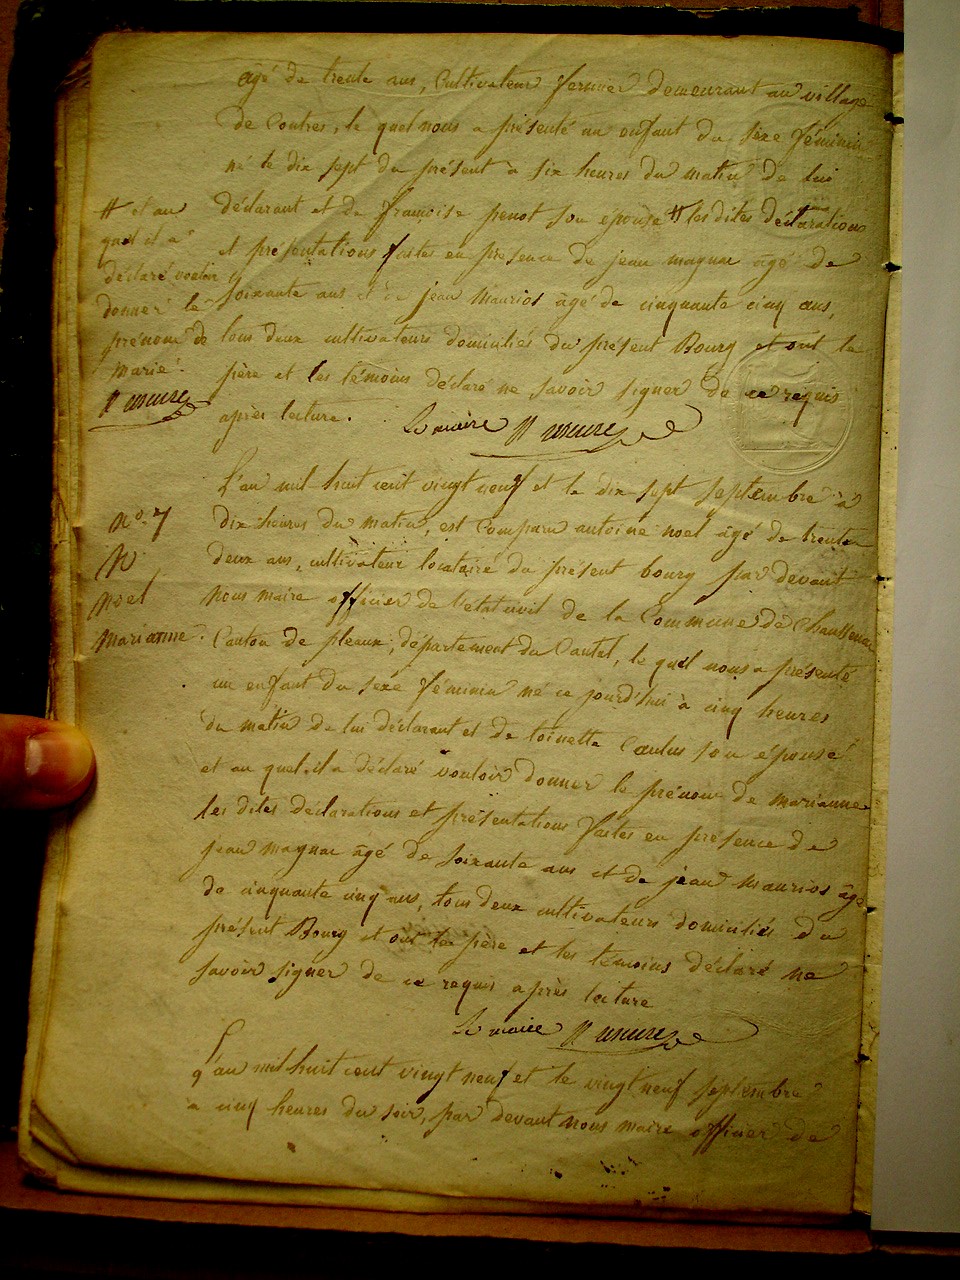 âgé de trente ans, cultivateur fermier demeurant au village
de Contres, le quel nous a présenté un enfant du sèxe féminin
né le dix sept du présent à six heures du matin de lui
déclarant et de francoise penot son épouse # les dites déclarations
et présentations faites en présence de jean magnac âgé de
soixante ans et de jean Maurios âgé de cinquante cinq ans,
tous deux cultivateurs domiciliés du présent Bourg et ont le
père et les témoins déclaré ne savoir signer de ce requis
après lecture.
Le maire
# et au
quel il a
déclaré vouloir
donner le
prénom de
marie.
L'an mil huit cent vingt neuf et le dix sept septembre à
dix heures du matin, est comparu antoine noel âgé de trente
deux ans, cultivateur locataire du présent bourg par devant
nous maire officier de l'état civil de la Commune de Chaussenac
Canton de pleaux, département du Cantal, le quel nous a présenté
un enfant du sexe féminin né ce jourd'hui à cinq heures
du matin de lui déclarant et de toinette Caulus son épouse
et au quel il a déclaré vouloir donner le prénom de marianne
les dites déclarations et présentations faites en présence de
jean magnac âgé de soixante ans et de jean Maurios âgé
de cinquante cinq ans, tous deux cultivateurs domiciliés du
présent Bourg et ont le père et les témoins déclaré ne
savoir signer de ce requis après lecture
Le maire
N° 7
N
Noël
Marianne.
L'an mil huit cent vingt neuf et le vingt neuf septembre
a cinq heures du soir, par devant nous maire officier de